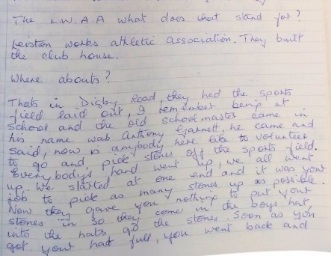 The L.W.A.A what does that stand for?
Leiston works athletic association. They built
the club house.
Where abouts?
Thats in Digby Road, they had the sports
field laid out, I remember being at
school and the old schoolmaster came in
his name was Anthony Garnett, he came and
said, now is anybody here like to volunteer
to go and pick stones off the sports field.
Everybodys hand went up, we all went
up. We started at one end and it was your
job to pick as many stones up as possible.
Now they gave you nothing to put your
stones in so they come in the boys hat,
into the hats go the stones. Soon as you
got your hat full, you went back and